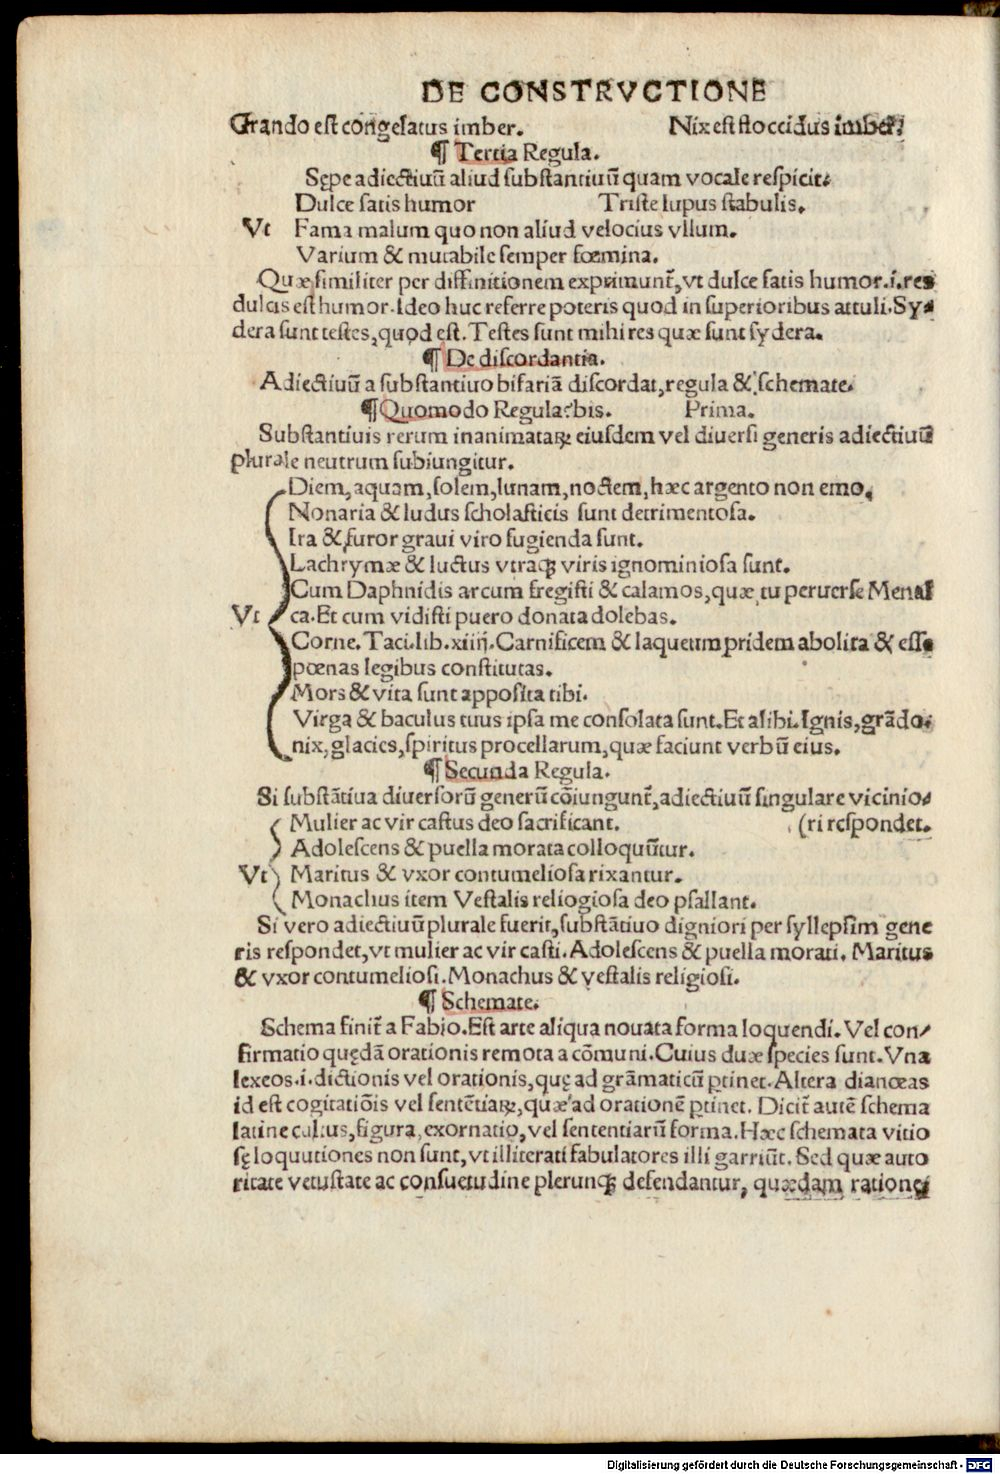 DE CONSTRVCTIONE
Grando est congelatus imber. Nix est floccidus imber.
¶ Tertia Regula.
Sępe adiectiuū aliud substantiuū quam vocale respicit.
Dulce satis humor Triste lupus stabulis.
Vt Fama malum quo non aliud velocius vllum.
Varium & mutabile semper fœmina.
Quæ similiter per diffinitionem exprimunt̃, vt dulce satis humor .i. res
dulcis est humor. Ideo huc referre poteris quod in superioribus attuli. Sy-
dera sunt testes, quod est. Testes sunt mihi res quæ sunt sydera.
¶ De discordantia.
Adiectiuū a substantiuo bifariā discordat, regula & schemate.
¶ Quomodo Regula: bis. Prima.
Substantiuis rerum inanimataꝝ eiusdem vel diuersi generis adiectiuū
plurale neutrum subiungitur.
Diem, aquam, solem, lunam, noctem, hæc argento non emo.
Nonaria & ludus scholasticis sunt detrimentosa.
Ira & furor graui viro fugienda sunt.
Lachrymæ & luctus vtraqꝫ viris ignominiosa sunt.
Cum Daphnidis arcum fregisti & calamos, quæ tu peruerse Menal
Vt ca. Et cum vidisti puero donata dolebas.
Corne. Taci. lib. xiiij. Carnificem & laqueum pridem abolita & esse
pœnas legibus constitutas.
Mors & vita sunt apposita tibi.
Virga & baculus tuus ipsa me consolata sunt. Et alibi. Ignis, grādo.
nix, glacies, spiritus procellarum, quæ faciunt verbū eius.
¶ Secunda Regula.
Si substātiua diuersorū generū cōiungunt̃, adiectiuū singulare vicinio-
Mulier ac vir castus deo sacrificant. (ri respondet.
Adolescens & puella morata colloquūtur.
Vt Maritus & vxor contumeliosa rixantur.
Monachus item Vestalis reliogiosa deo psallant.
Si vero adiectiuū plurale fuerit, substātiuo digniori per syllepsim gene
ris respondet, vt mulier ac vir casti. Adolescens & puella morati. Maritus
& vxor contumeliosi. Monachus & vestalis religiosi.
¶ Schemate.
Schema finit̃ a Fabio. Est arte aliqua nouata forma loquendi. Vel con-
firmatio quędā orationis remota a cōmuni. Cuius duæ species sunt. Vna
lexeos .i. dictionis vel orationis, quę ad grāmaticū ꝑtinet. Altera dianœas
id est cogitatiōis vel sentētiaꝝ, quæ ad orationē ꝑtinet. Dicit̃ autē schema
latine cultus, figura, exornatio, vel sententiarū forma. Hæc schemata vitio
sę loquutiones non sunt, vt illiterati fabulatores illi garriūt. Sed quæ auto
ritate vetustate ac consuetudine plerunqꝫ defendantur, quædam rationę
Digitalisierung gefördert durch die Deutsche Forschungsgemeinschaft - DFG